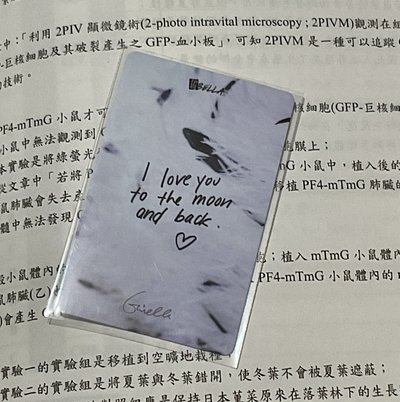 中:「利用 2PIV 顯微鏡術(2-photo intravital microscopy ; 2PIVM)觀察在組
巨核細胞及其破裂產生之 GFP-血小板」,可知 2PIVM 是一種可以追蹤
技術。
BELLA
PF4-mTmG 小鼠才可
細胞(GFP-巨核
小鼠中無法觀察到
膜上;
本實驗是將綠螢光
G 小鼠中,植入後的
文章中「若將 P
移植 PF4-mTmG 肺臟的
鼠肺臟會失去產
體中無法發現 G
I love you
to the moon
and back.
♡
小鼠體內
;植入 mTmG 小鼠體
鼠肺臟(乙)
PF4-mTmG 小鼠體內的 m
會產生
Giselle
實驗一的實驗組是移植到空曠地栽種
實驗二的實驗組是將夏葉與冬葉錯開,使冬葉不會被夏葉遮蔽;
是保持日本菫菜原來在落葉林下的生長